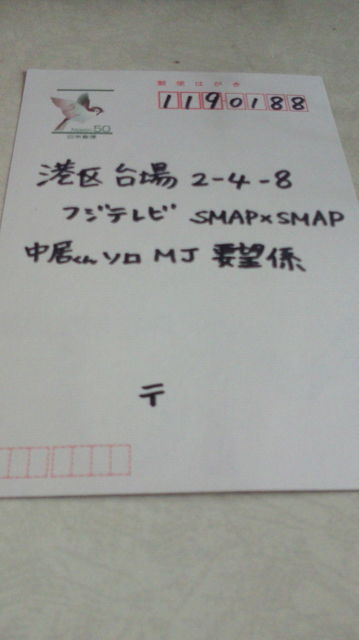 郵便はがき
1190188
NIPPON 50
日本郵便
港区台場 2-4-8
フジテレビ SMAP×SMAP
中居くんソロ MJ 要望係
〒